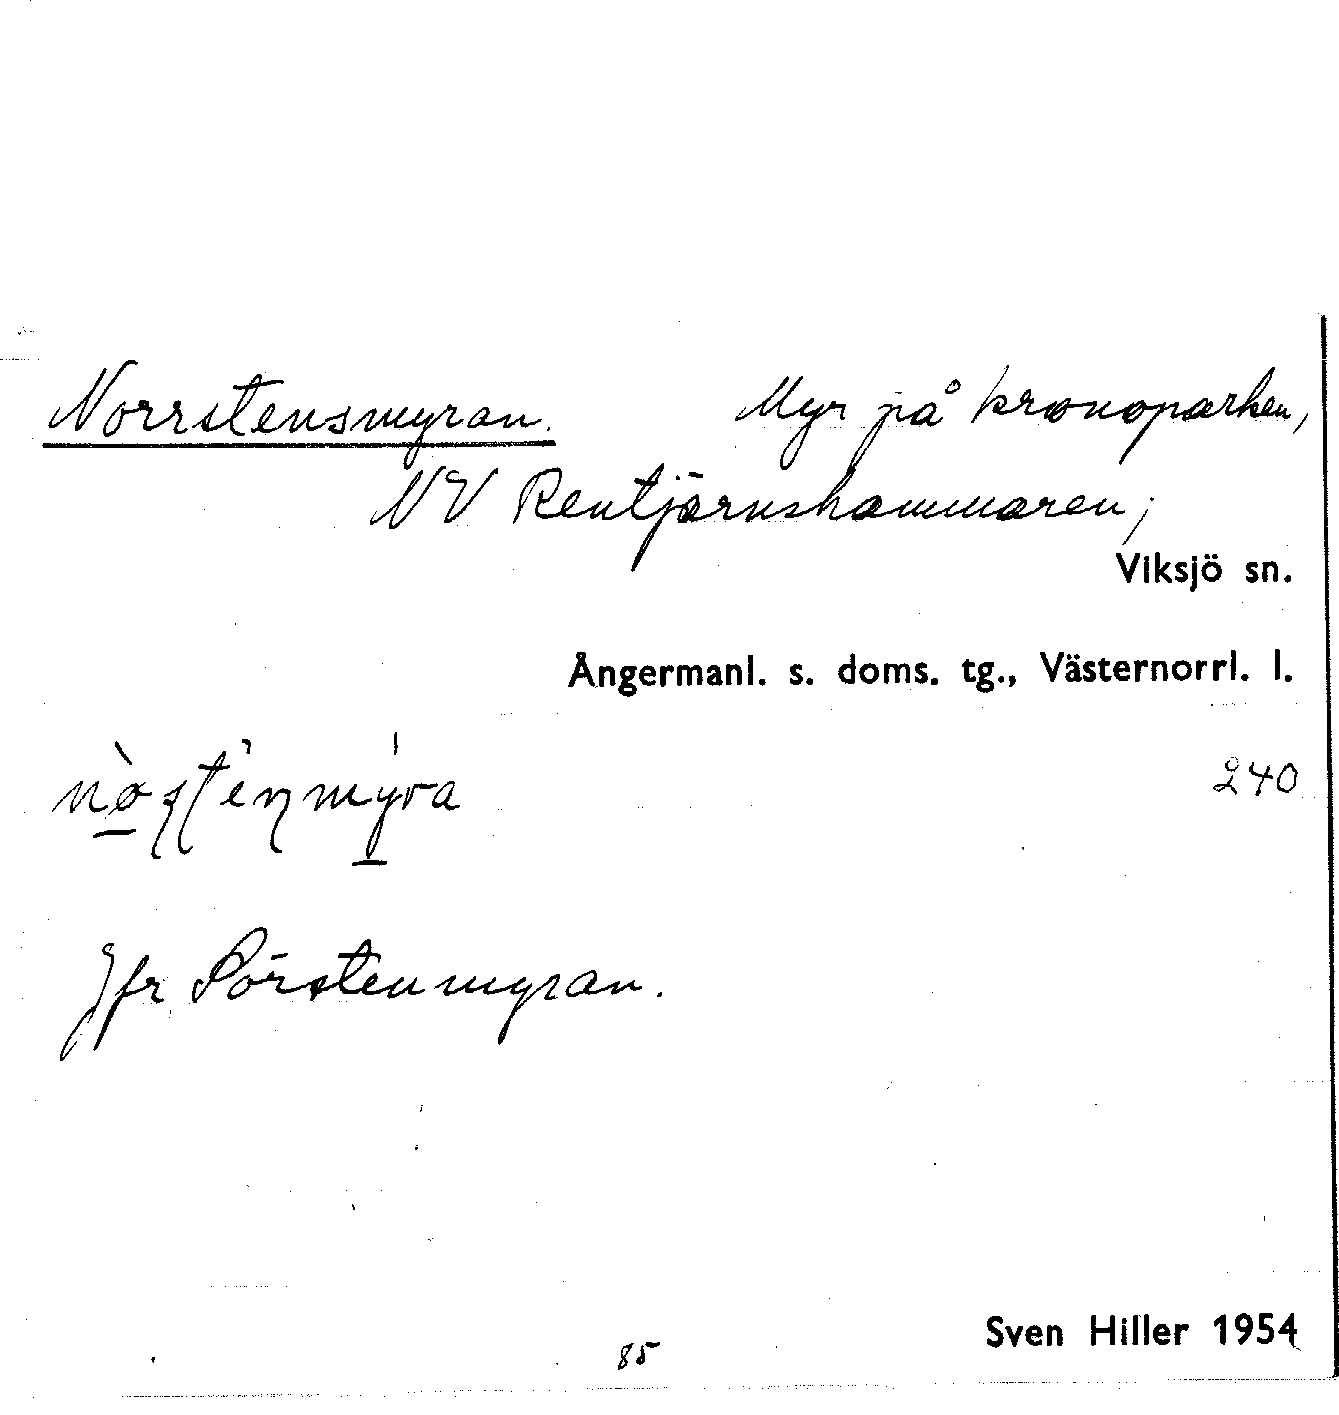 Norrstensmyran. Myr på kronoparken,
NV Rentjärnshammaren;
Viksjö sn.
Ångermanl. s. doms. tg., Västernorrl. l.
240
Jfr Sörstenmyran.
Sven Hiller 1954
85